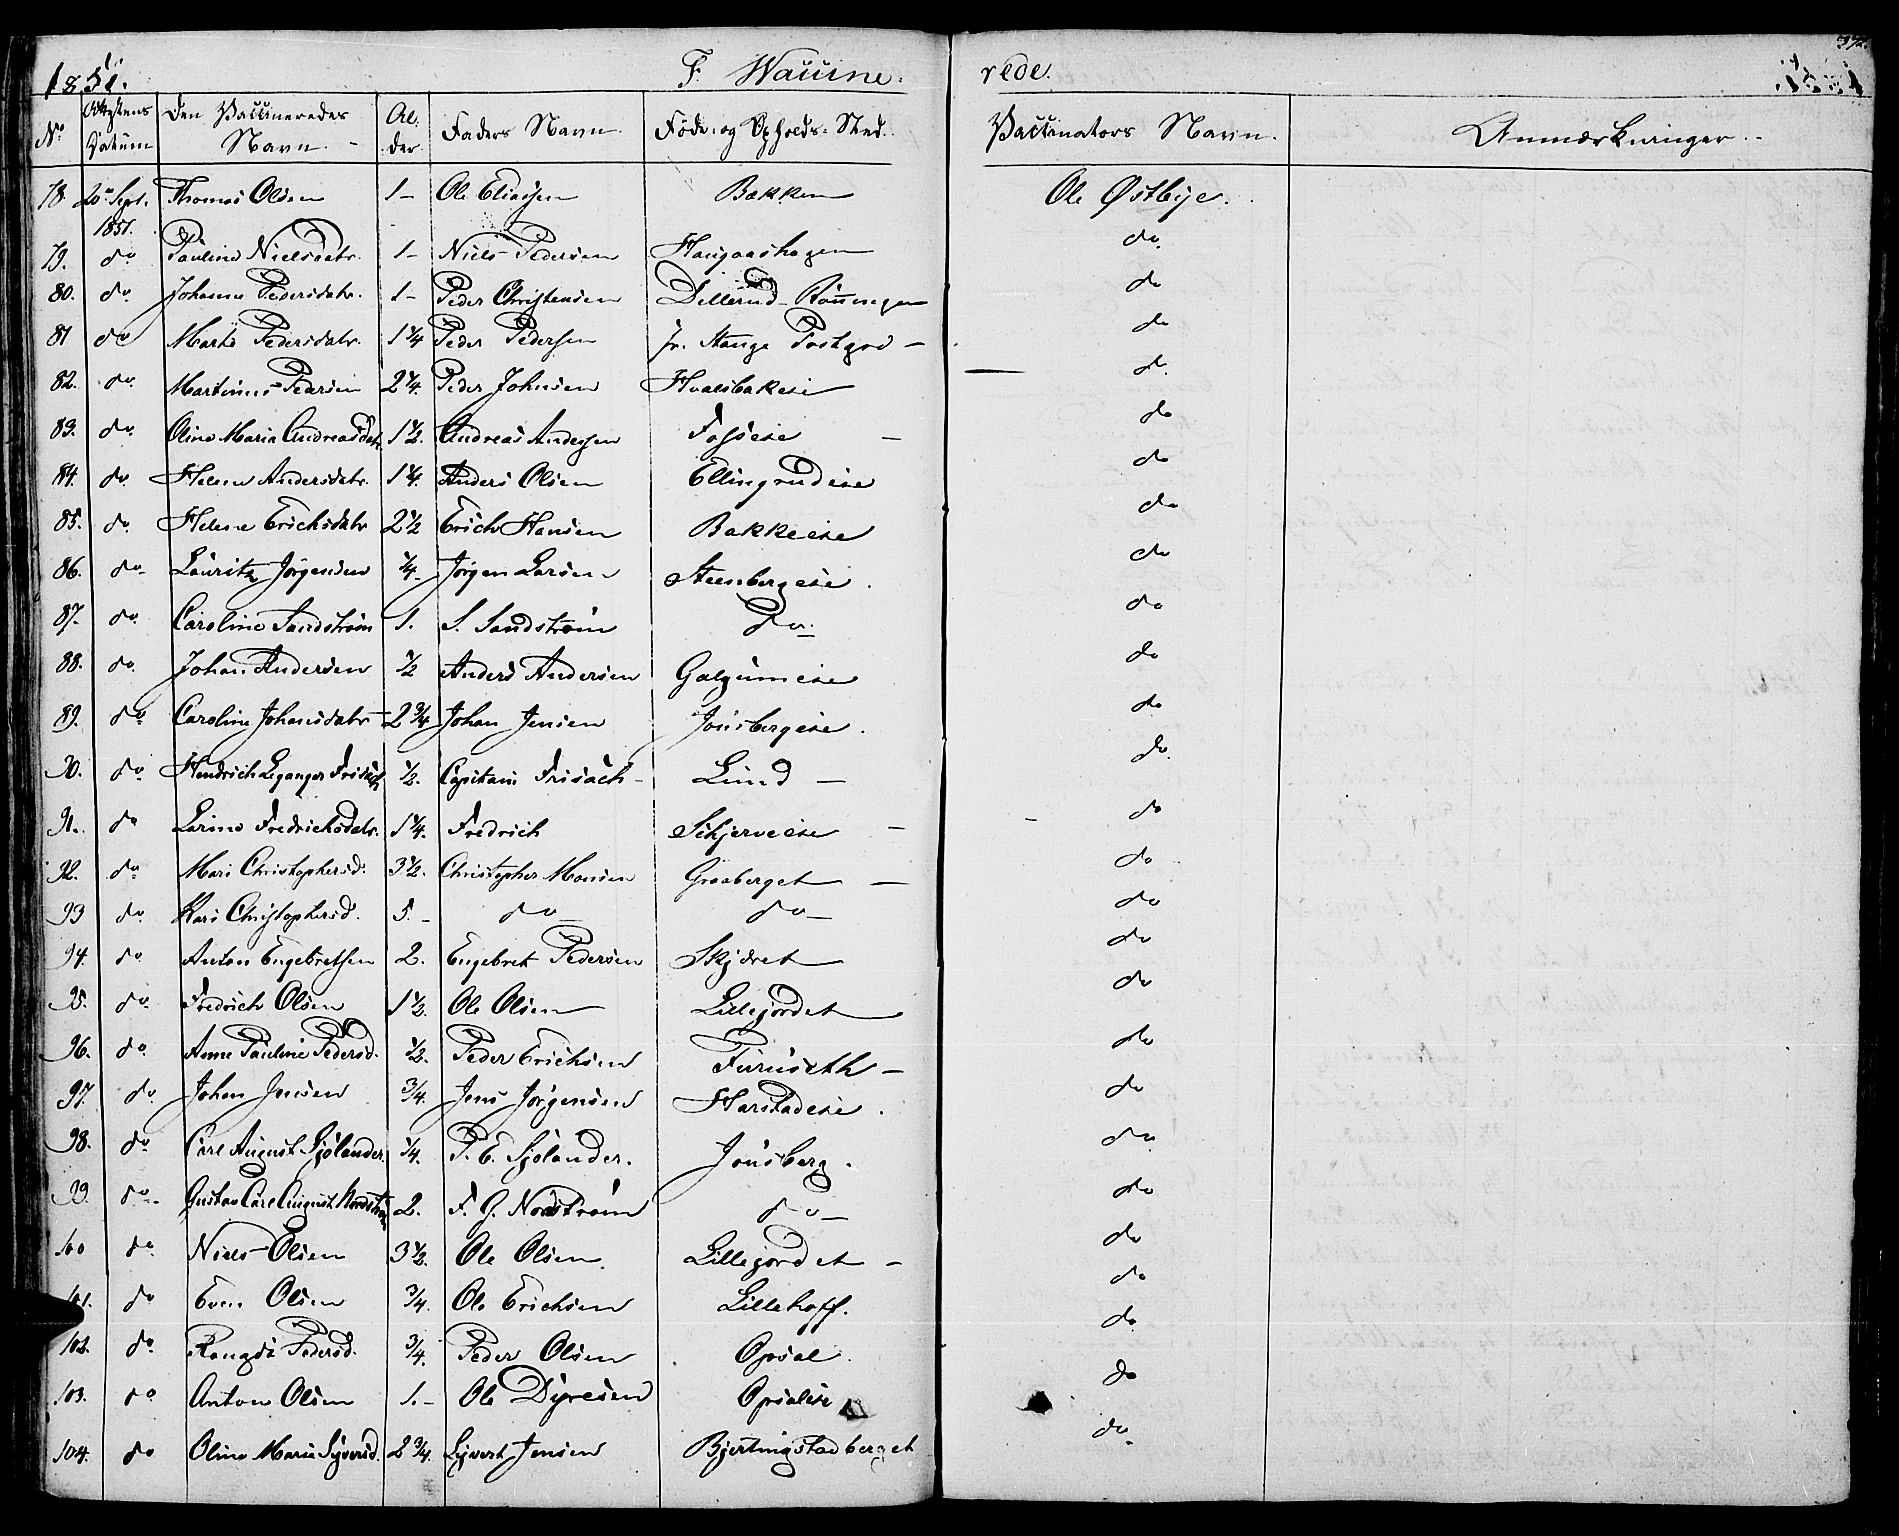 1851. F. Vaccine- rede. 1851.
No Attestens Datum Den Vaccineredes Navn. Al-der Faders Navn. Føde- og Opholds-Sted. Vaccinators Navn. Anmærkninger.
78. 20de Sept. 1851. Thomas Olsen 1- Ole Eliassen Bakken Ole Østbye.
79. do Pauline Nielsdatr. 1- Niels Pedersen Haugaashagen do
80. do Johanne Pedersdatr. 1- Peder Christensen Dillerud-Rønningen do
81 do Marte Pedersdatr. 1 1/4 Peder Pedersen fr. Stange Postgrd - do
82. do Martinus Pedersen 2 1/4. Peder Johnsen Hvalsbakeie do
83. do Oline Marie Andreasdatr 1 1/2. Andreas Andersen Fosseie - do
84. do Helene Andersdatr. 1 1/4. Anders Olsen Ellingrudeie do
85. do Helene Erichsdatr 2 1/2 Erich Hansen Bakkeeie do
86. do Lauritz Jørgensen 1/4- Jørgen Larsen Steenbergeie. do
87. do Caroline Sandstrøm 1. S. Sandstrøm do do
88. do Johan Andersen 1/2 Anders Andersen Galgumeie do
89. do Caroline Johansdatr 2 3/4 Johan Jensen Jønsbergeie. do
90. do Hendrich Leganger Frisach 1/2. Capitain Frisach Lund - do
91. do Larine Fredrichsdatr. 1 1/4. Fredrich Schjerveeie - do
92. do Mari Christophersd. 3 1/2. Christopher Monsen Graaberget - do
93 do Kari Christophersd. 5.- do do do
94. do Anton Engebretsen 2. Engebret Pedersen Skjæret do
95. do Fredrich Olsen 1 1/2. Ole Olsen Lillejordet do
96. do Anne Pauline Pedersd. 1/2. Peder Erichsen Furuseth - do
97. do Johan Jensen 3/4. Jens Jørgensen Harstadeie. do
98. do Carl August Sjølander 1/4. P. E. Sjølander. Jønsberg. do
99. do Gustav Carl August Nordstrøm 2. F. G. Nordstrøm do do
100 do Niels Olsen 3 1/2. Ole Olsen Lillejordet - do
101. do Even Olsen 3/4. Ole Erichsen Lillehoff. do
102. do Rangdi Pedersd. 3/4. Peder Olsen Opsal do
103. do Anton Olsen 1.- Ole Dyresen Opsaleie do
104. do Oline Marie Syversd. 2 3/4. Syvert Jensen Bjertingstadberget do